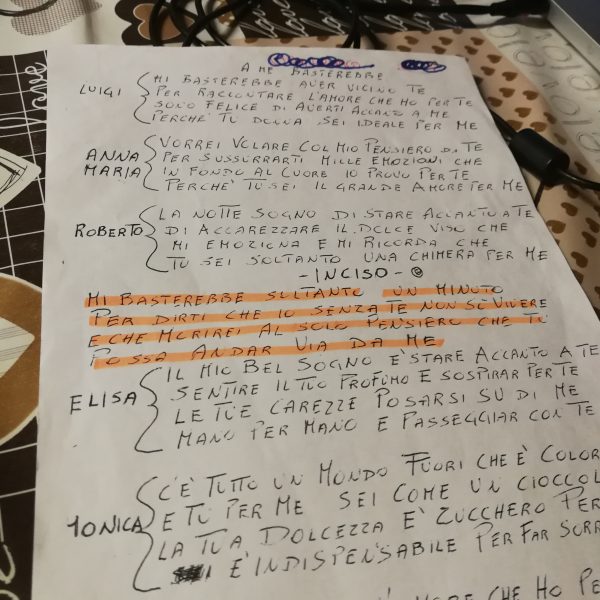 A ME BASTEREBBE
LUIGI
MI BASTEREBBE AVER VICINO TE
PER RACCONTARE L'AMORE CHE HO PER TE
SONO FELICE DI AVERTI ACCANTO A ME
PERCHE' TU DONNA SEI IDEALE PER ME
ANNA MARIA
VORREI VOLARE COL MIO PENSIERO DA TE
PER SUSSURRARTI MILLE EMOZIONI CHE
IN FONDO AL CUORE IO PROVO PER TE
PERCHE' TU SEI IL GRANDE AMORE PER ME
ROBERTO
LA NOTTE SOGNO DI STARE ACCANTO A TE
DI ACCAREZZARE IL DOLCE VISO CHE
MI EMOZIONA E MI RICORDA CHE
TU SEI SOLTANTO UNA CHIMERA PER ME
-INCISO-
MI BASTEREBBE SOLTANTO UN MINUTO
PER DIRTI CHE IO SENZA TE NON SO VIVERE
E CHE MORIREI AL SOLO PENSIERO CHE TU
POSSA ANDAR VIA DA ME
ELISA
IL MIO BEL SOGNO E' STARE ACCANTO A TE
SENTIRE IL TUO PROFUMO E SOSPIRAR PER TE
LE TUE CAREZZE POSARSI SU DI ME
MANO PER MANO E PASSEGGIAR CON TE
MONICA
C'E' TUTTO UN MONDO FUORI CHE È COLOR
E TU PER ME SEI COME UN CIOCCOL
LA TUA DOLCEZZA E' ZUCCHERO PER
E' INDISPENSABILE PER FAR SORR
MORE CHE HO PE